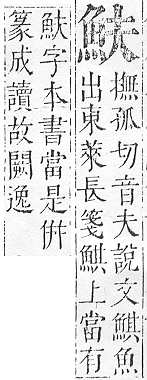 鮇
撫孤切音夫說文鯕魚
出東萊長箋鯕上當有
鮇字本書當是倂
篆成讀故闕逸